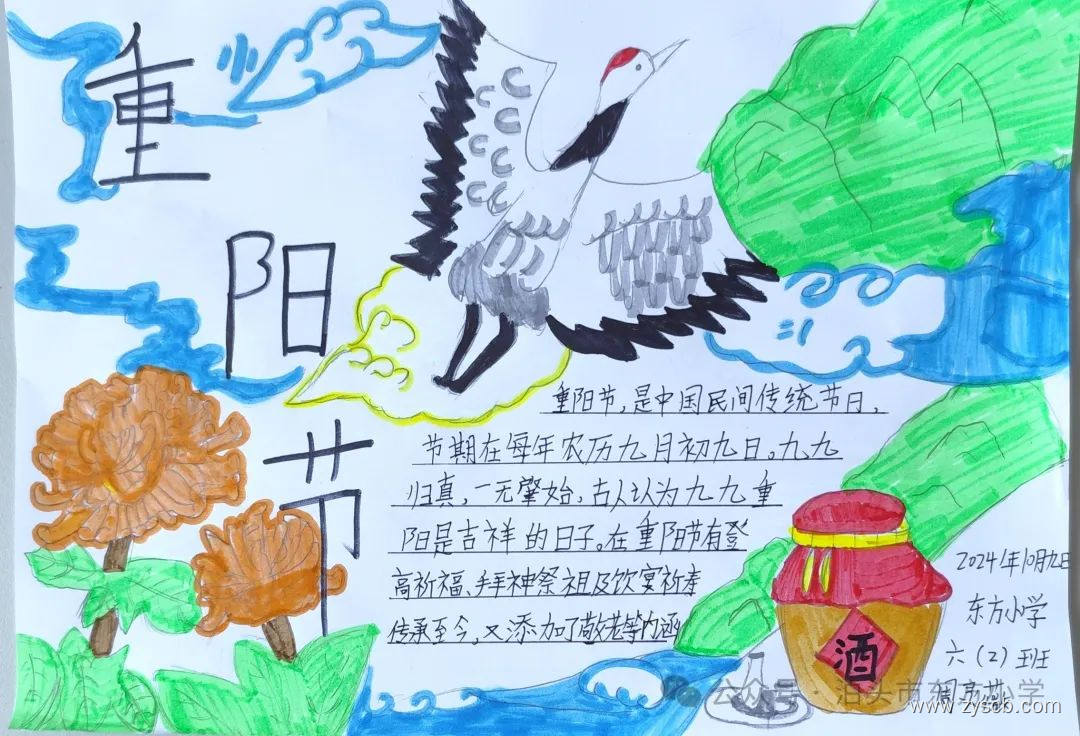 重
阳
节
重阳节,是中国民间传统节日,
节期在每年农历九月初九日。九九
归真,一元肇始,古人认为九九重
阳是吉祥的日子。在重阳节有登
高祈福、拜神祭祖及饮宴祈寿
传承至今,又添加了敬老等内涵
酒
2024年10月九日
东方小学
六(2)班
公众号·泊头市东方小学
www.zyscb.com